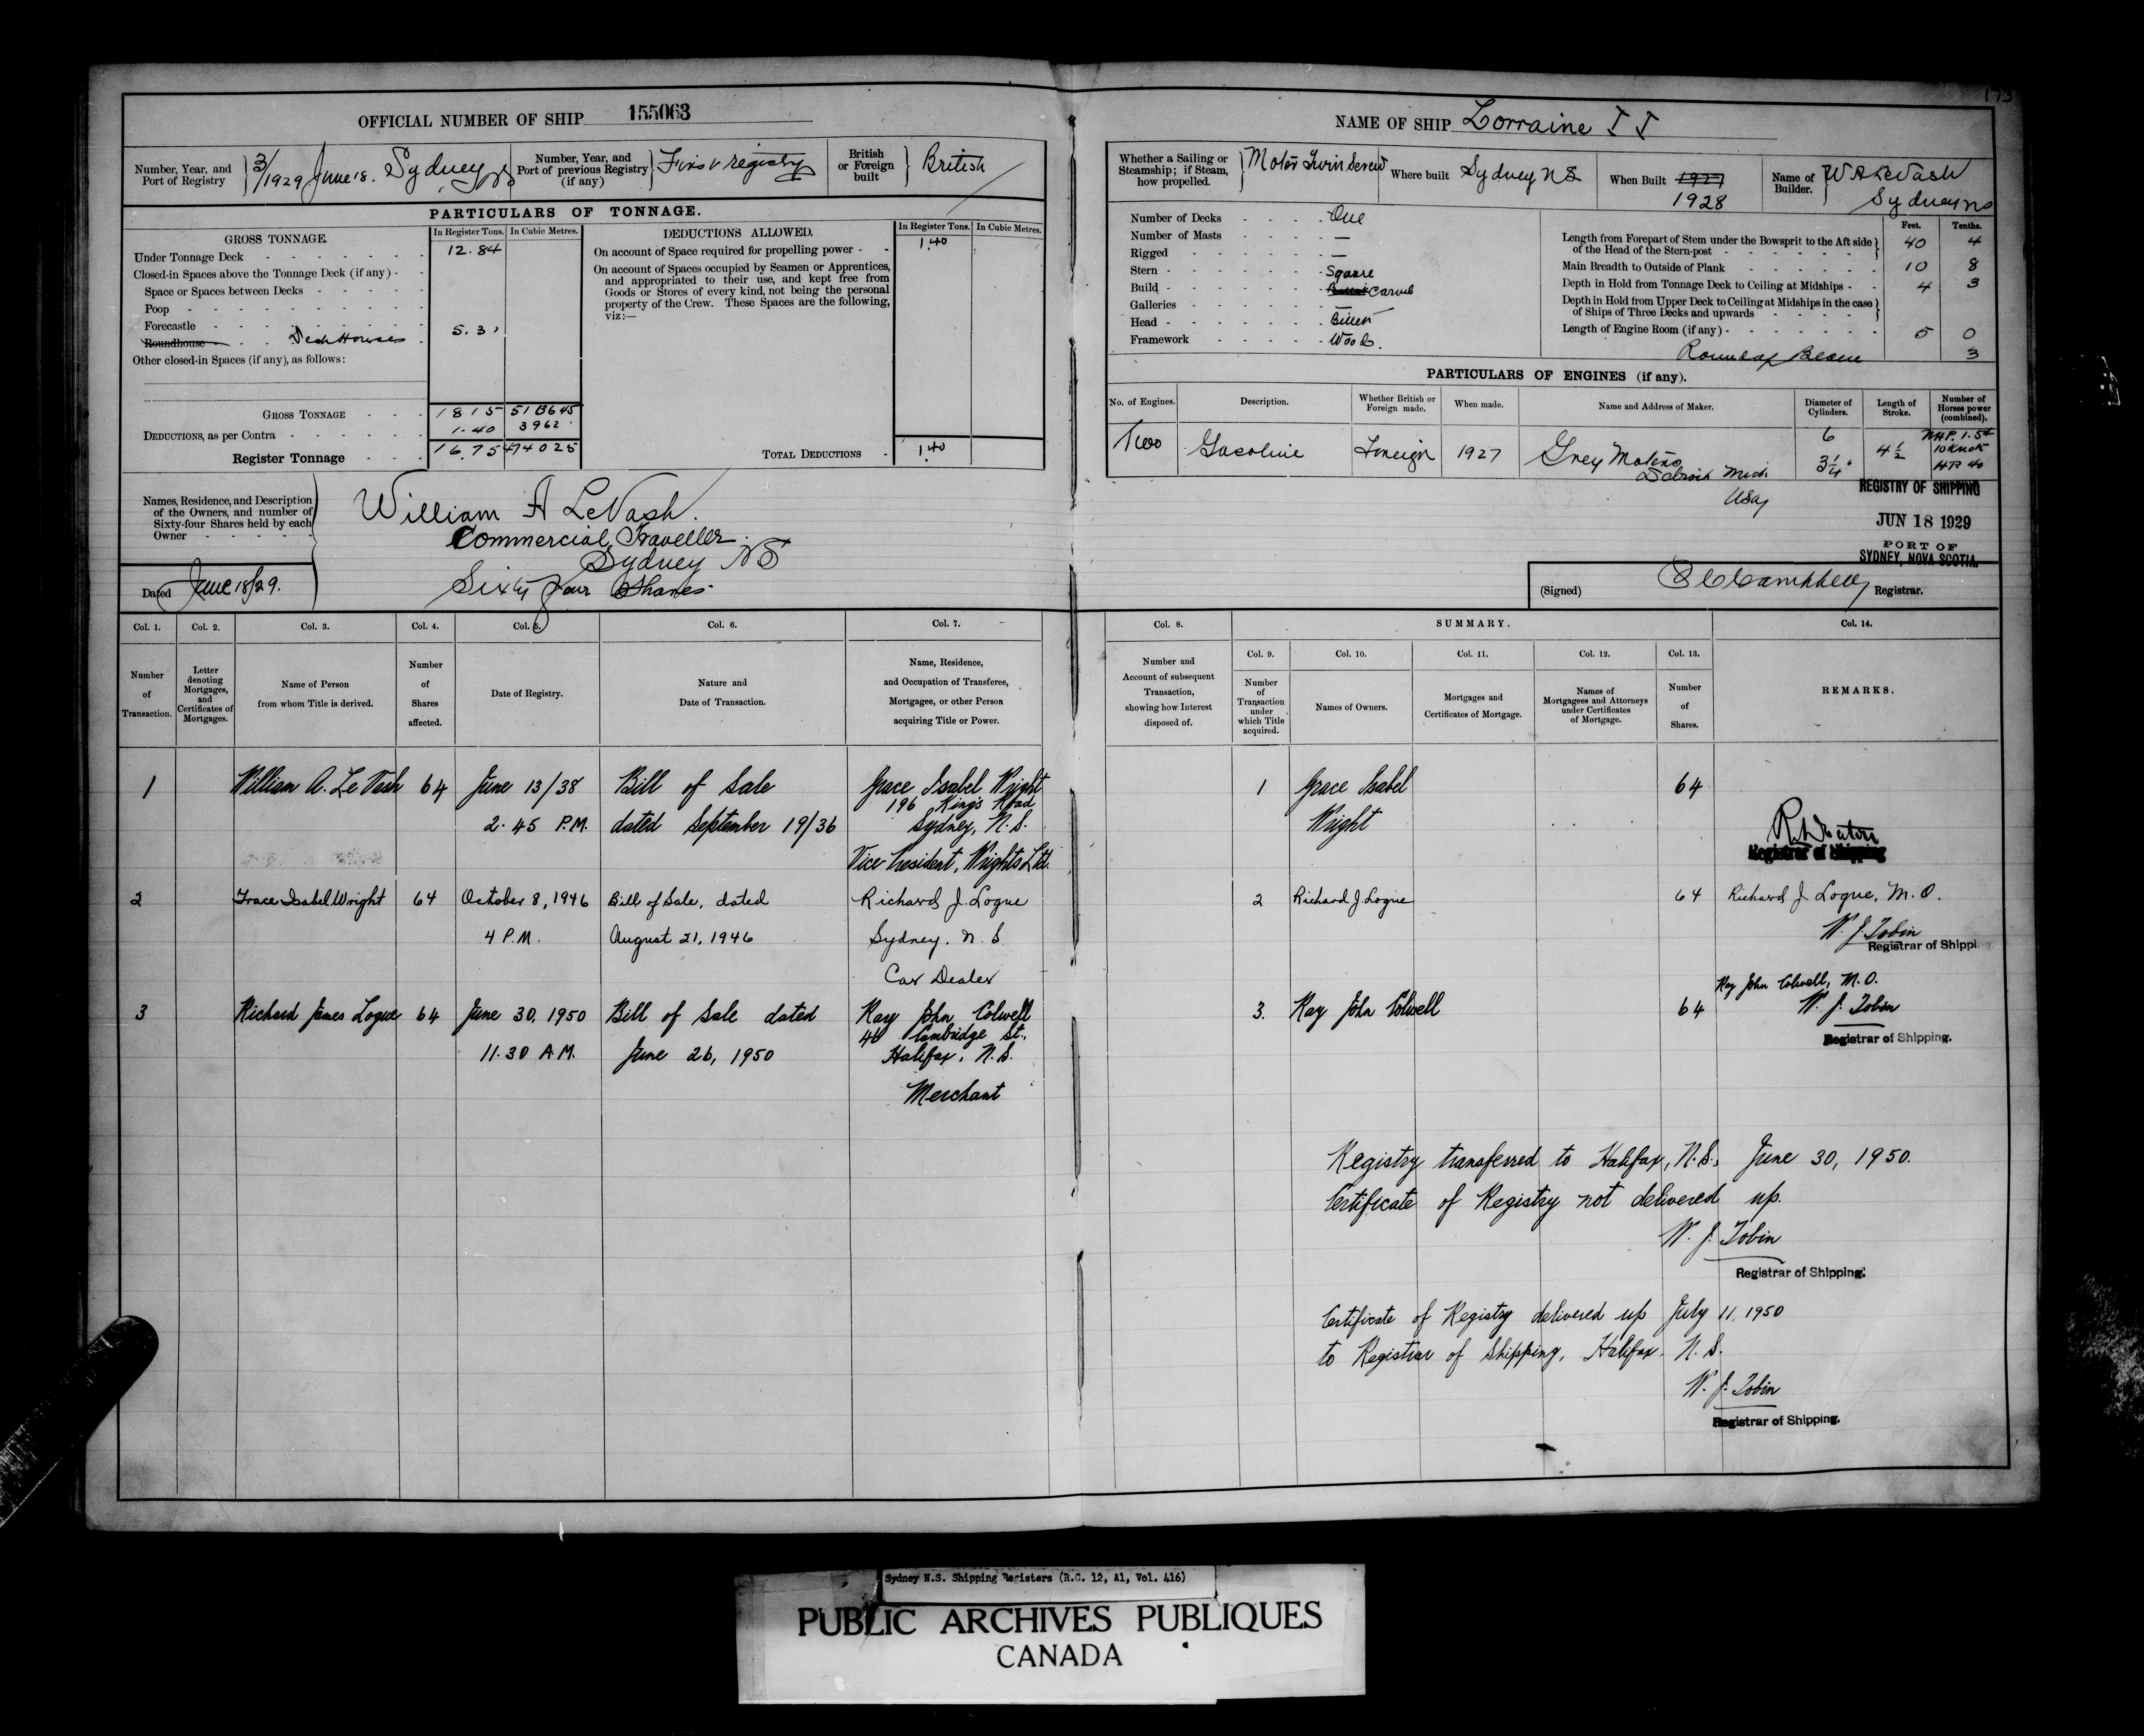 OFFICIAL NUMBER OF SHIP 155063
Number, Year, and Port of Registry 3/1929 June 18. Sydney NS
Number, Year, and Port of previous Registry (if any) First registry
British or Foreign built British
PARTICULARS OF TONNAGE.
GROSS TONNAGE. In Register Tons. In Cubic Metres.
Under Tonnage Deck 12.84
Closed-in Spaces above the Tonnage Deck (if any)
Space or Spaces between Decks
Poop
Forecastle
Roundhouse Deck Houses 5.31
Other closed-in Spaces (if any), as follows:
GROSS TONNAGE 18 15
DEDUCTIONS, as per Contra 1.40 3962
Register Tonnage 16.75
DEDUCTIONS ALLOWED. In Register Tons. In Cubic Metres.
On account of Space required for propelling power 1.40
On account of Spaces occupied by Seamen or Apprentices,
and appropriated to their use, and kept free from
Goods or Stores of every kind, not being the personal
property of the Crew. These Spaces are the following,
viz:—
TOTAL DEDUCTIONS 1.40
Names, Residence, and Description
of the Owners, and number of
Sixty-four Shares held by each
Owner
William A LeVash.
Commercial Traveller.
Sydney NS
Sixty four Shares
Dated June 18/29.
NAME OF SHIP Lorraine II
Whether a Sailing or Steamship; if Steam, how propelled. Motor Twin Screw
Where built Sydney NS
When Built 1927
1928
Name of Builder. W A LeVash
Sydney NS
Number of Decks One
Number of Masts —
Rigged —
Stern Square
Build Carvel
Galleries —
Head Billet
Framework Wood.
Feet. Tenths.
Length from Forepart of Stem under the Bowsprit to the Aft side
of the Head of the Stern-post 40 4
Main Breadth to Outside of Plank 10 8
Depth in Hold from Tonnage Deck to Ceiling at Midships 4 3
Depth in Hold from Upper Deck to Ceiling at Midships in the case
of Ships of Three Decks and upwards
Length of Engine Room (if any) 5 0
Round of Beam 3
PARTICULARS OF ENGINES (if any).
No. of Engines. Description. Whether British or Foreign made. When made. Name and Address of Maker. Diameter of Cylinders. Length of Stroke. Number of Horses power (combined).
Two Gasoline Foreign 1927 Grey Motors
Detroit Mich
USA
6
3¼"
4½
10 Knots
HP 40
REGISTRY OF SHIPPING
JUN 18 1929
PORT OF
SYDNEY, NOVA SCOTIA.
(Signed) Campbell Registrar.
Col. 1. Col. 2. Col. 3. Col. 4. Col. 5. Col. 6. Col. 7.
Number of Transaction.
Letter denoting Mortgages, and Certificates of Mortgages.
Name of Person from whom Title is derived.
Number of Shares affected.
Date of Registry.
Nature and Date of Transaction.
Name, Residence, and Occupation of Transferee, Mortgagee, or other Person acquiring Title or Power.
1 William A. Le Vash 64 June 13/38 Bill of Sale Grace Isabel Wright
196 King's Road
2.45 P.M. dated September 19/36 Sydney, N.S.
Vice President, Wrights Ltd.
2 Grace Isabel Wright 64 October 8, 1946 Bill of Sale, dated Richard J. Logue
4 P.M. August 21, 1946 Sydney. N.S.
Car Dealer
3 Richard James Logue 64 June 30, 1950 Bill of Sale dated Ray John Colwell
46 Cambridge St.,
11.30 A.M. June 26, 1950 Halifax, N.S.
Merchant
Col. 8. SUMMARY. Col. 14.
Col. 9. Col. 10. Col. 11. Col. 12. Col. 13.
Number and Account of subsequent Transaction, showing how Interest disposed of.
Number of Transaction under which Title acquired.
Names of Owners.
Mortgages and Certificates of Mortgage.
Names of Mortgagees and Attorneys under Certificates of Mortgage.
Number of Shares.
REMARKS.
1 Grace Isabel 64
Wright
Registrar of Shipping
2 Richard J Logue 64 Richard J Logue, M.O.
W. J. Tobin
Registrar of Shipping
Ray John Colwell, M.O.
3. Ray John Colwell 64 W. J. Tobin
Registrar of Shipping.
Registry transferred to Halifax, N.S., June 30, 1950.
Certificate of Registry not delivered up.
W. J. Tobin
Registrar of Shipping.
Certificate of Registry delivered up July 11, 1950
to Registrar of Shipping, Halifax. N.S.
W. J. Tobin
Registrar of Shipping.
Sydney N.S. Shipping Registers (R.G. 12, A1, Vol. 416)
PUBLIC ARCHIVES PUBLIQUES
CANADA